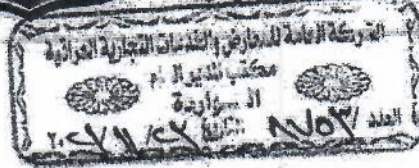 الشركة العامة للمعارض والخدمات التجارية العراقية
مكتب المدير العام
الـــواردة
العدد / ٨٧٥٣ التاريخ